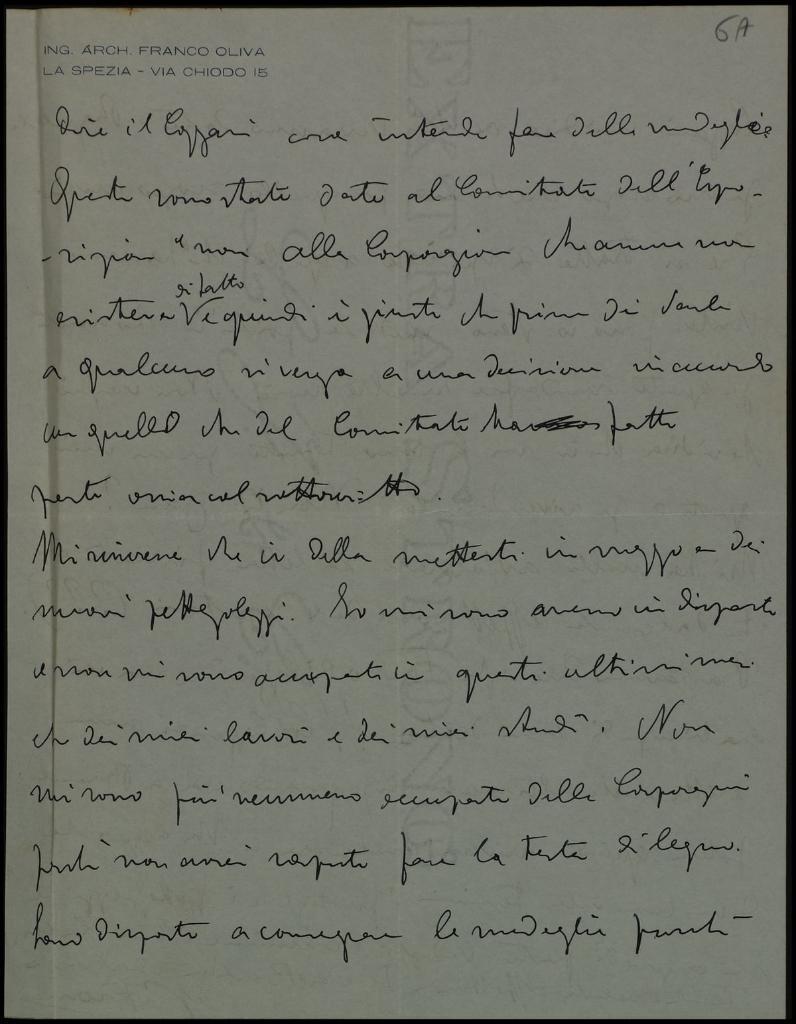 6A
ING. ARCH. FRANCO OLIVA
LA SPEZIA - VIA CHIODO 15
il cosa intende fare delle medaglie
Queste sono state date al Comitato dell'Espo-
-sizione e non alla Corporazione che non
di fatto
esisteva e quindi è giusto che prima di darle
a qualcuno si venga a una decisione in accordo
con quello che del Comitato ha fatto
parte ossia col sottoscritto.
Mi rincresce che io debba metterti in mezzo a dei
nuovi pettegolezzi. Io mi sono messo in disparte
e non mi sono occupato in questi ultimi mesi
che dei miei lavori e dei miei studi. Non
mi sono più nemmeno occupato della Corporazione
perché non avrei saputo fare la testa di legno.
Sono disposto a consegnare le medaglie purché